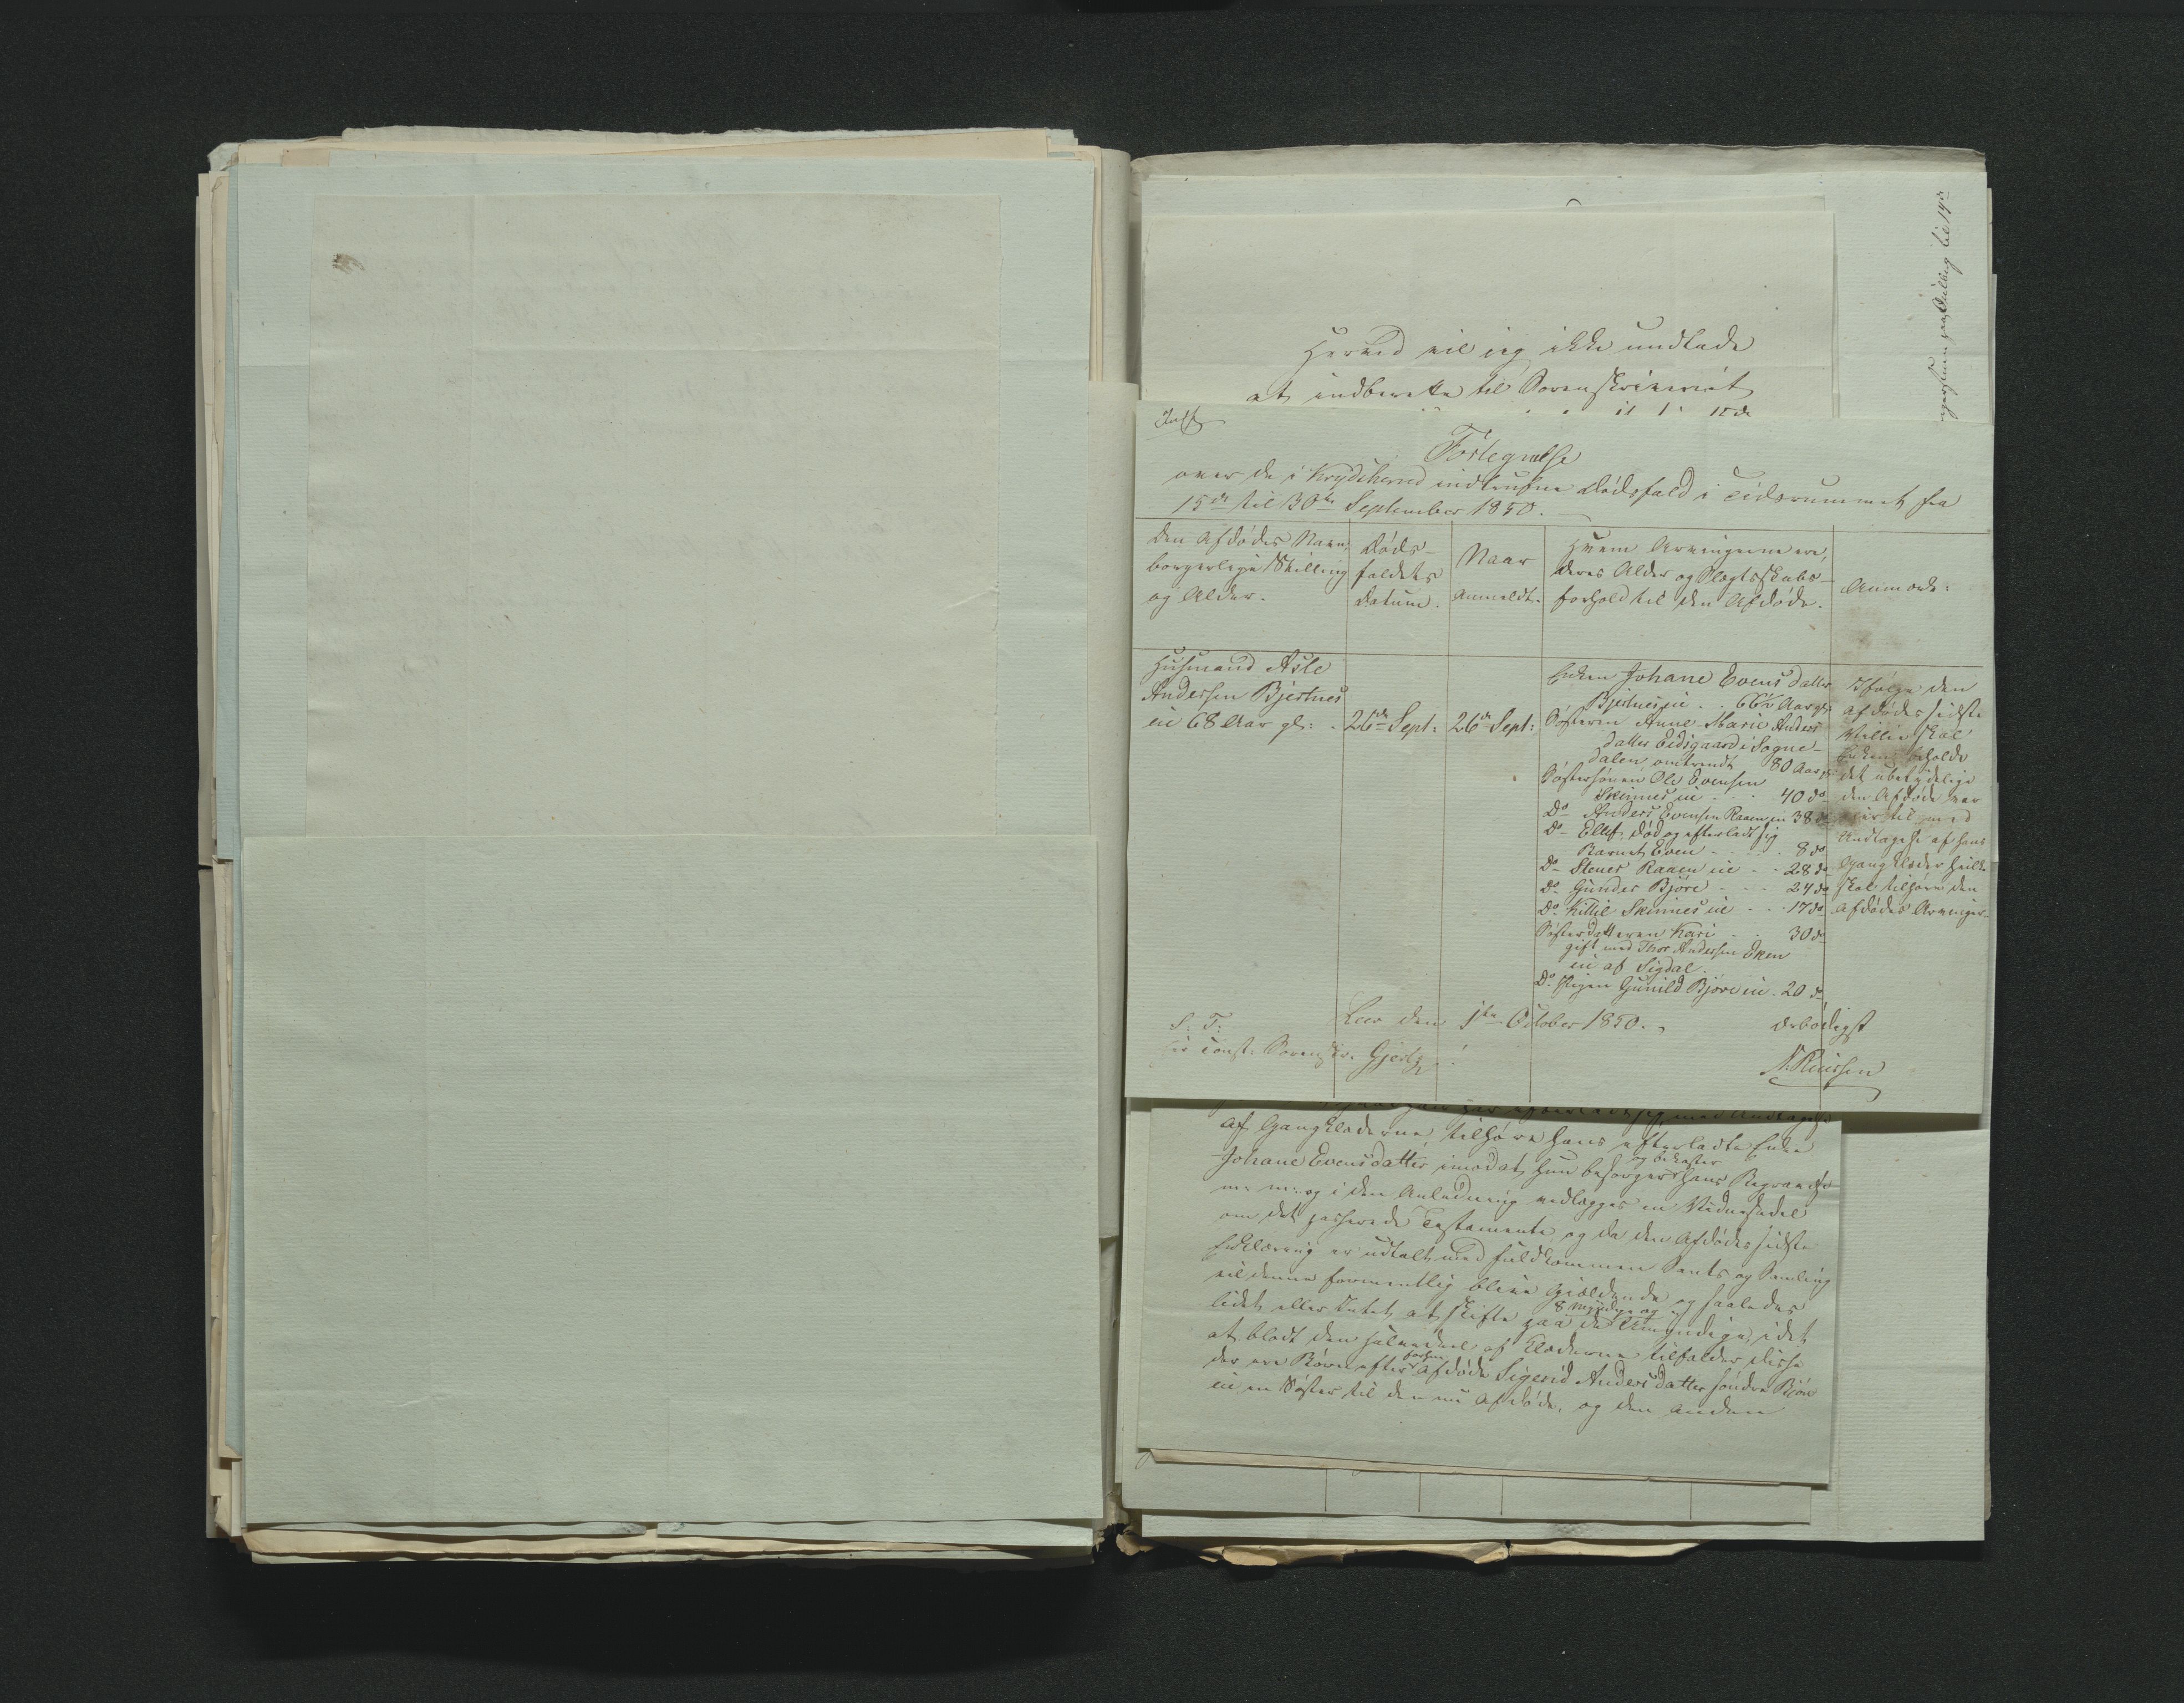 Herved vil jeg ikke undlade
at indberette til Sorenskriveriet
Fortegnelse
over de i Krydsherred indtrufne Dødsfald i Tidsrummet fra
15de til 30te September 1850.
Den Afdødes Navn,
borgerlige Stilling
og Alder.
Døds-
faldets
Datum.
Naar
Anmeldt.
Hvem Arvingerne ere,
deres Alder og Slegtskabs-
forhold til den Afdøde.
Anmærk:
Husmand Asle
Andersen Bjertnes
eie 68 Aar gl:
26de Sept:
26de Sept:
Enken Johane Evensdatter
Bjertneseie . . 66½ Aar gl:
Søsteren Anne Marie Anders
datter Eidsgaard i Sogne-
dalen, omtrendt 80 Aar gl:
Søstersønen Ole Evensen
Skinneseie . . 40 do
Do Anders Evensen Raaeneie 38 do
Do Ellef, død og efterladt sig
Barnet Even . . . . 8 do
Do Stener Raaeneie . . 28 do
Do Gunder Bjøre . . . 24 do
Do Kittil Skinneseie . . . 17 do
Søsterdatteren Kari . . 30 do
gift med Thor Andersen Eken
eie af Sigdal.
Do Pigen Gunild Bjøreeie . 20 do
Ifølge den
Afdødes sidste
Villie skal
Enken beholde
det ubetydelige
den Afdøde var
eier til med
Undtagelse af hans
Gangklæder hvilke
skal tilhøre den
Afdødes Arvinger.
Leer den 1ste October 1850.
Ærbødigst
S. T.
Hr const: Sorenskr. Gjertz
af Gangklæderne, tilhøre hans efterladte Enke
og bekoster
Johane Evensdatter imod at hun besørger hans Begravelse
m: m: og i den Anledning vedlægges en Vidnesedel
om det passerede Testamente, og da den Afdødes sidste
Erklæring er udtalt med fuldkommen Sants og Samling
vil denne formentlig blive gjældende og saaledes
8 myndige og
lidet eller Intet at skifte paa de Umyndige, idet
at blodt den halve deel af Klæderne tilfalder disse
forhen
der ere Børn efter afdøde Sigerid Andersdatter søndre Bjøre
eie en Søster til den nu Afdøde, og den anden